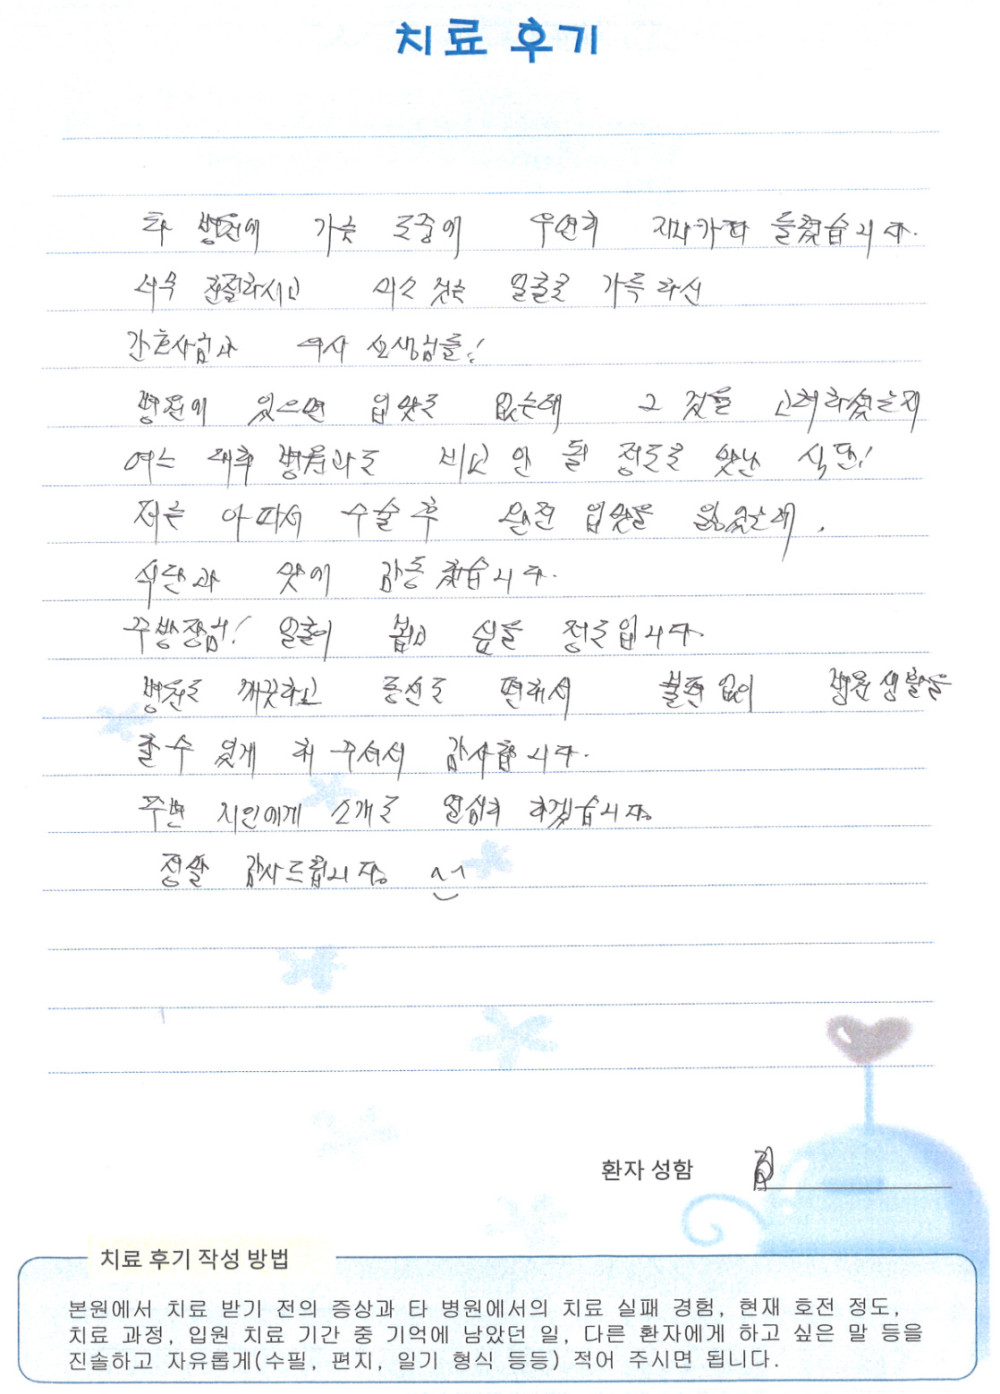 치료 후기
타 병원에 가는 도중에 우연히 지나가다 들렸습니다.
너무 친절하시고 미소 짓는 얼굴로 가득하신
간호사님과 의사 선생님들!
병원에 있으면 입맛도 없는데 그 것을 고려하셨는지
여느 대학 병원과도 비교 안 될 정도로 맛난 식단!
저는 아파서 수술 후 완전 입맛을 잃었는데,
식단과 맛에 감동 했습니다.
주방장님! 얼굴이 뵙고 싶을 정도입니다.
병원도 깨끗하고 동선도 편해서 불편 없이 병원 생활을
할 수 있게 해 주셔서 감사합니다.
주변 지인에게 소개도 열심히 하겠습니다.
정말 감사드립니다. ^-^
환자 성함
치료 후기 작성 방법
본원에서 치료 받기 전의 증상과 타 병원에서의 치료 실패 경험, 현재 호전 정도,
치료 과정, 입원 치료 기간 중 기억에 남았던 일, 다른 환자에게 하고 싶은 말 등을
진솔하고 자유롭게(수필, 편지, 일기 형식 등등) 적어 주시면 됩니다.